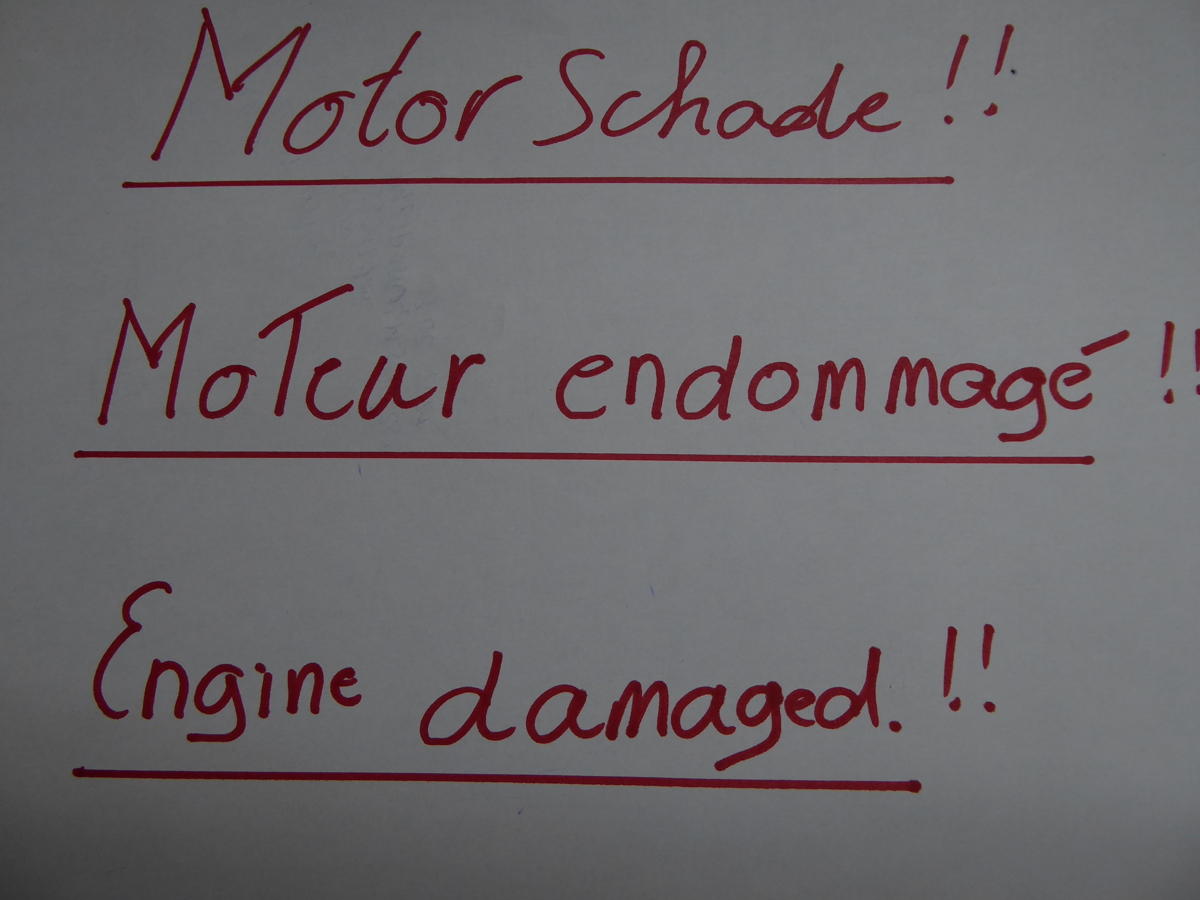 Motor Schade!!
MoTeur endommagé!!
Engine damaged.!!